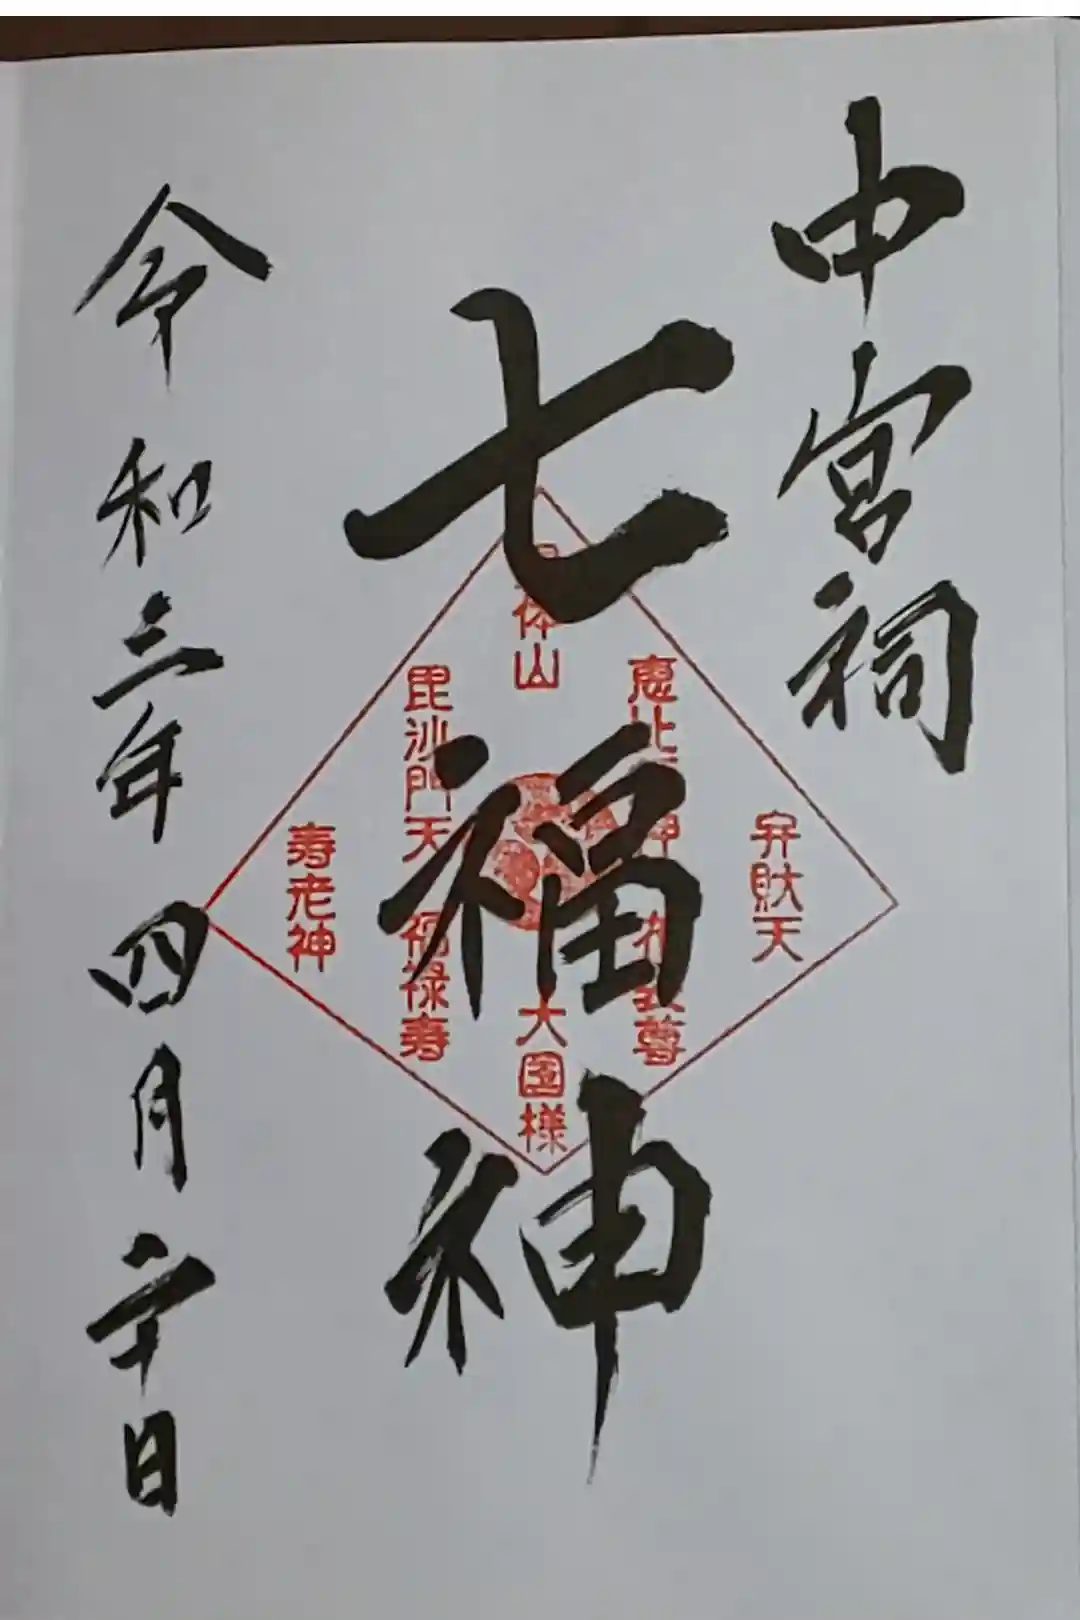 中宮祠
七福神
令和三年四月二十日
体山
弁財天
恵比
神
尊
大国様
毘沙門天
福禄寿
寿老神